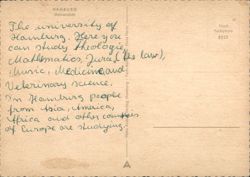 HAMBURG
Universität
The university of
Hamburg. Here you
can study theologie,
Mathematics, Jura (the law),
Music, Medicine and
Veterinary science.
In Hamburg people
from Asia, America,
Africa and other countries
of Europe are studying.